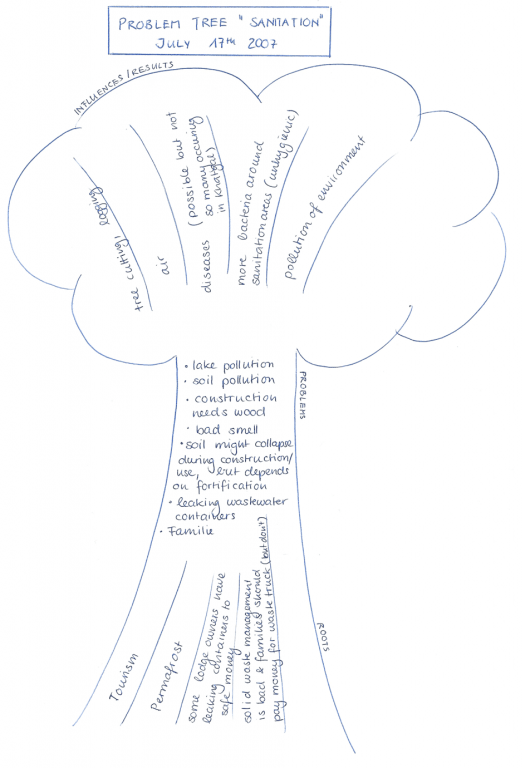 PROBLEM TREE "SANITATION"
JULY 17TH 2007
INFLUENCES/RESULTS
tree cutting/ logging
air
diseases (possible but not
so many occuring
in Khatgal)
more bacteria around
sanitation areas (unhygienic)
pollution of environment
PROBLEMS
• lake pollution
• soil pollution
• construction
needs wood
• bad smell
• soil might collapse
during construction/
use, but depends
on fortification
• leaking wastewater
containers
• Familie
ROOTS
Tourism
Permafrost
some lodge owners have
leaking containers to
safe money
solid waste management
is bad & families should
pay money for waste truck (but dont)